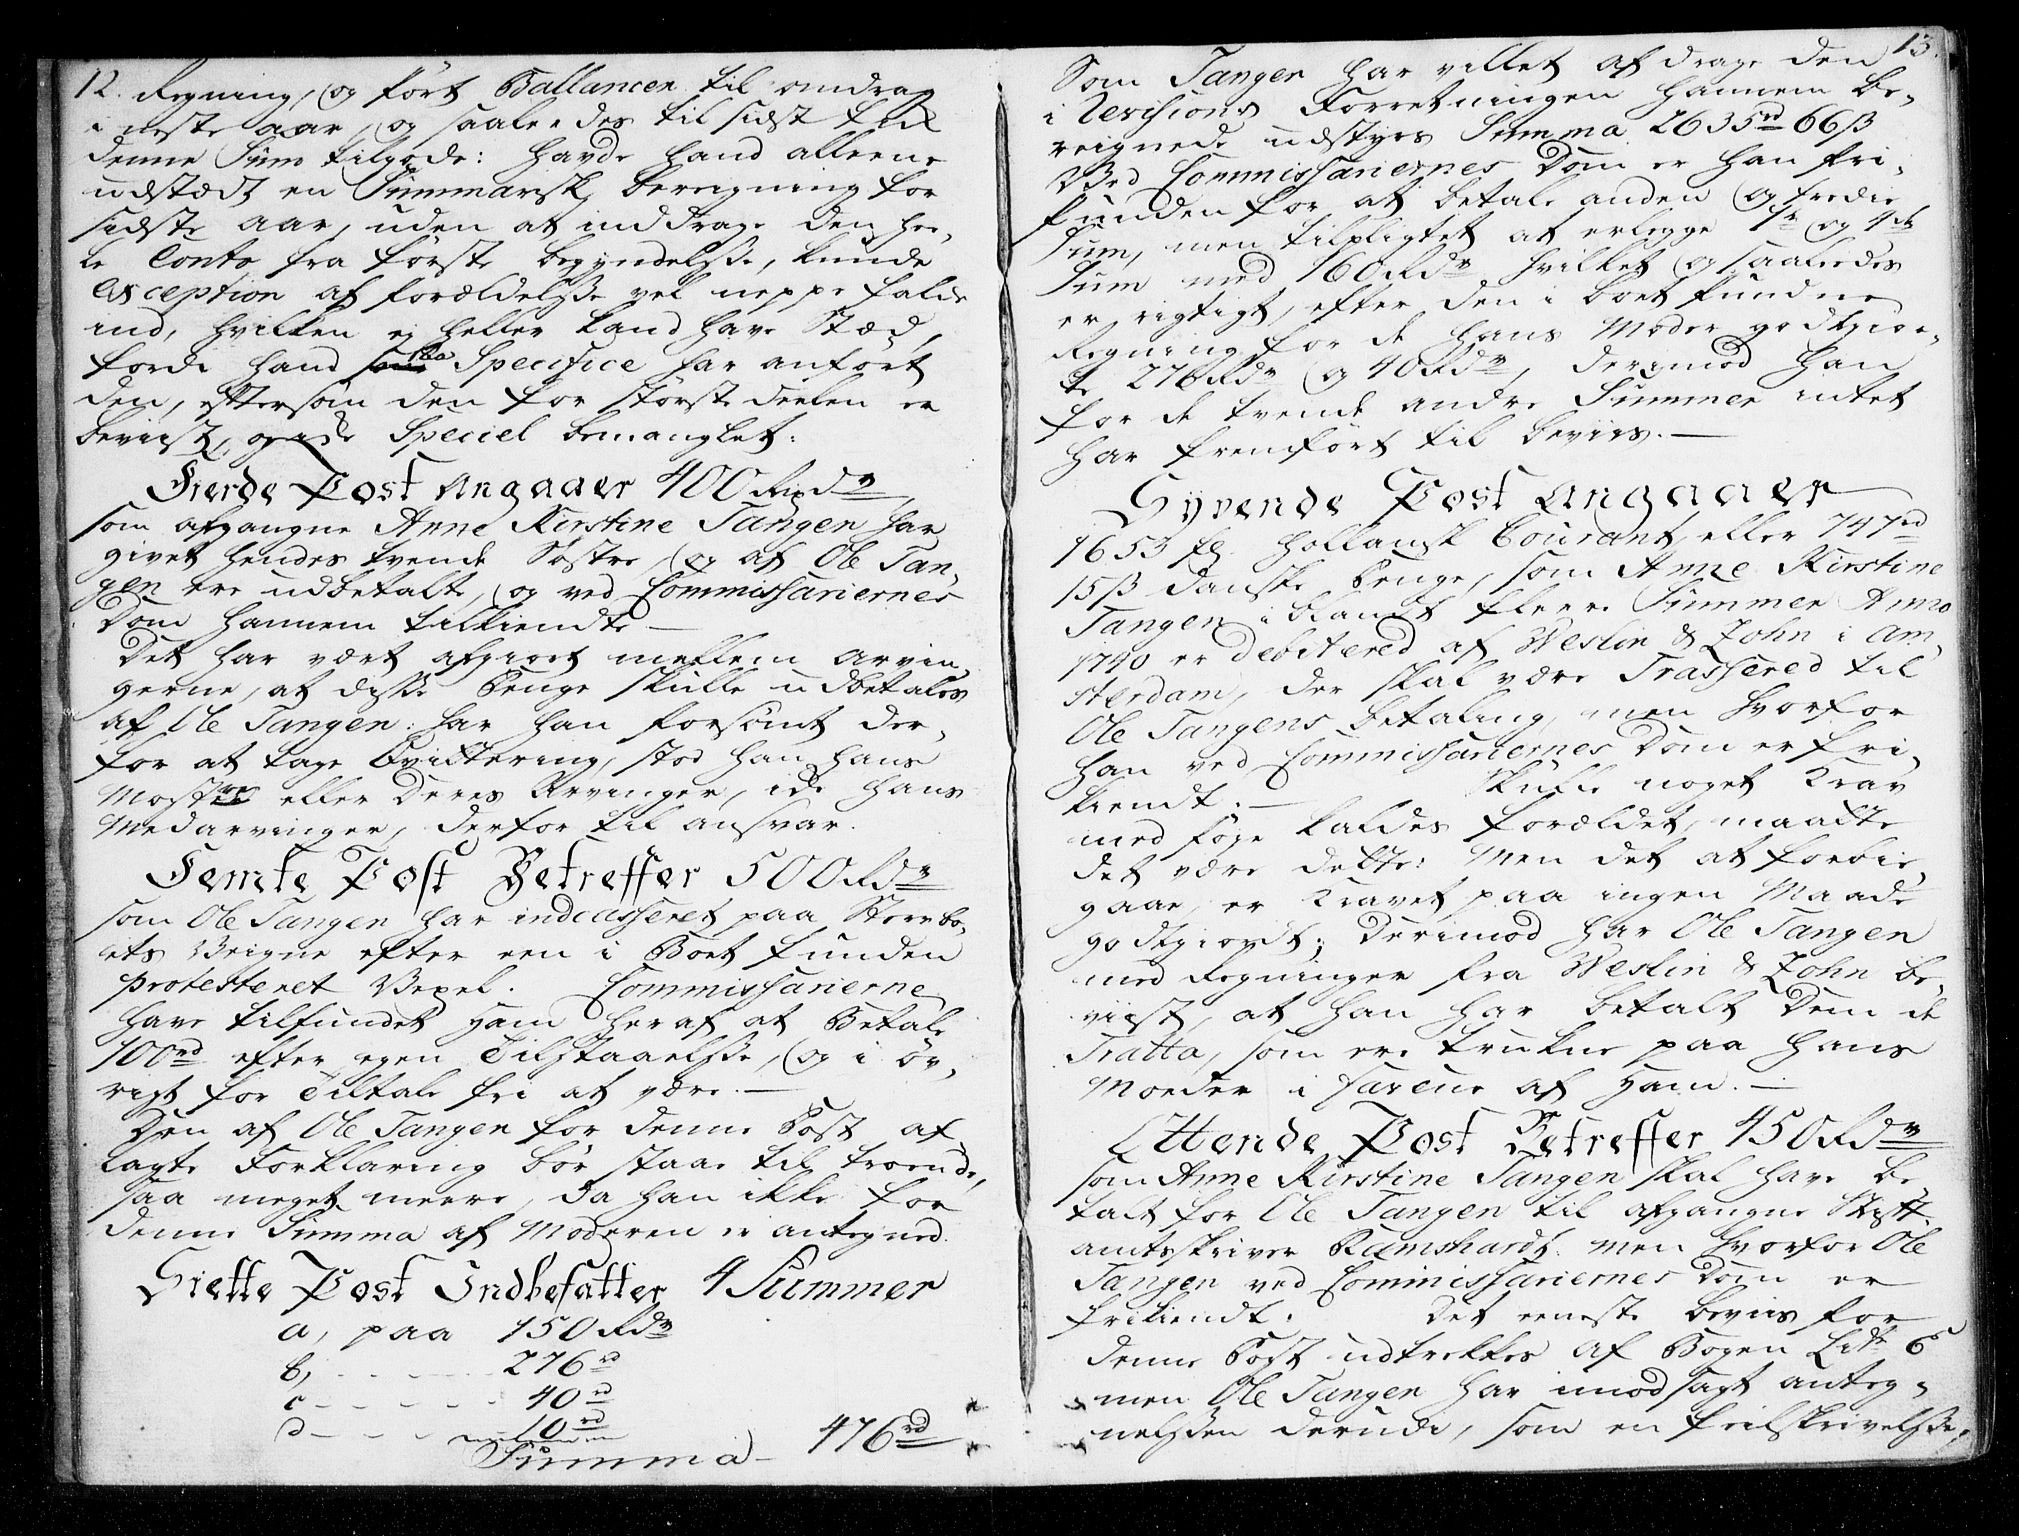 12. Regning, og ført Ballancen til omdrag
i neste aar, og saaledes til sidst til
denne Sum tilgode: havde hand alleene
udstædt en Summarisk beregning for
sidste aar, uden at inddrage den hee,
le Conto fra første begyndelsse, kunde
Exception af forældelsse vel neppe falde
ind, hvilken ej heller kand have Stæd,
fordi hand saa Specifice har anført
den, eftersom den for største deelen er
beviist, Speciel bemanglet:
Fierde Post Angaaer 400 Rixdr
som afgangne Anne Kirstine Tangen har
givet hendes tvende Søstre, og af Ole Tan,
gen ere udbetalte, og ved Commissariernes
Dom hannem tilkiendte —
Det har vært afgiort mellem Arvin,
gerne, at disse Penge skulle udbetales
af Ole Tangen: har han forsømt der,
for at tage Qvittering, stod han hans
Mostre eller deres Arvinger, ikke hans
Medarvinger, derfor til ansvar.
Femte Post Betreffer 500 Rdr
som Ole Tangen har indcasseret paa Stervbo,
ets Veigne efter een i Boet funden
protesteret Vexel. Commissarierne
have tilfundet ham heraf at Betale
100rd efter egen Tilstaaelsse, og i øv,
rigt for Tiltale fri at være. —
Den af Ole Tangen for denne Post af,
lagte Forklaring bør staae til troende,
saa meget meere, da han ikke for
denne Summa af Moderen er antegned.
Siette Post Indbefatter 4 Summer
a, paa 150 Rdr
b, - - - - - 276rd
c - - - - - 40rd
d - - - - 10rd
Summa - 476rd
13.
Som Tangen har villet af drage den
i Revisions Forretningen hannem be,
reignede udstyrs Summa 2635rd 66ß
Ved Commissariernes Dom er han fri,
funden for at betale anden og tredie
Sum, men tilpligtet at erlegge 1te og 4de
Sum med 160 Rdr hvilket og saaledes
er rigtigt, efter den i boet fundne
Regning for de hans Moder godtgior,
te 276 Rdr og 40 Rdr, derimod han
for de tvende andre Summer intet
har fremført til beviis. —
Syvende Post Angaaer
1653 fl. hollansk Courant, eller 747rd
15ß danske Penge, som Anne Kirstine
Tangen i blandt fleere Summer Anno
1740 er debitered af Weslin & Zohn i Am,
sterdam, der skal være Trassered til
Ole Tangens betaling, men hvorfor
han ved Commissariernes Dom er fri,
kiendt. — Skulle noget Krav
med føye kaldes forældet, maatte
det være dette: Men det at forbie,
gaae, er Kravet paa ingen Maade
godtgiordt; Derimod har Ole Tangen
med Regninger fra Weslin & Zohn be,
viist, at han har betalt dem de
Tratta, som ere trukne paa hans
Moeder i faveur af ham. —
Ottende Post Betreffer 450 Rdr
som Anne Kirstine Tangen skal have be,
talt for Ole Tangen til afgangne Stift,
amtskriver Ramshardt: men hvorfor Ole
Tangen ved Commissariernes Dom er
frikiendt: Det eeneste beviis for
denne Post udtrekkes af Bogen Litr C
men Ole Tangen har imodsagt anteg,
nelssen derude, som en feilskrivelsse,